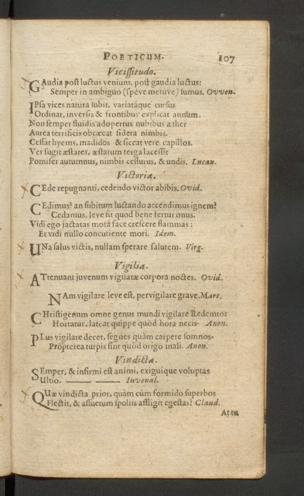 POETICUM. 107
Vicissitudo.
GAudia post luctus venium, post gaudia luctus:
Semper in ambiguo (spéve metuve) sumus. Owen.
IPsa vices natura subit, variatáque cursus
Ordinat, inversis & frontibus explicat annum.
Non semper fluidis adopertus nubibus æther
Aurea terrificis obcæcat sidera nimbis.
Cessat hyems, madidos & siccat vere capillos.
Ver fugit æstates, æstatum terga lacessit
Pomifer autumnus, nimbis cessurus, & undis. Lucan.
Victoria.
CEde repugnanti, cedendo victor abibis. Ovid.
CEdimus? an subitum luctando accendimus ignem?
Cedamus, leve fit quod bene fertur onus.
Vidi ego jactatas mota face crescere flammas:
Et vidi nullo concutiente mori. Idem.
UNa salus victis, nullam sperare salutem. Virg.
Vigilia.
ATtenuant juvenum vigilatæ corpora noctes. Ovid.
NAm vigilare leve est, pervigilare grave. Mart.
CHristigenum omne genus mundi vigilare Redemtor
Hortatur, lateat quippe quòd hora necis. Anon.
PLus vigilare decet, segues quàm carpere somnos.
Propterea turpis sint quòd origo mali. Anon.
Vindicta.
SEmper, & infirmi est animi, exiguique voluptas
Ultio. —— —— Iuvenal.
QUæ vindicta prior, quàm cùm formido superbos
Flectit, & assuetum spoliis affligit egestas? Claud.